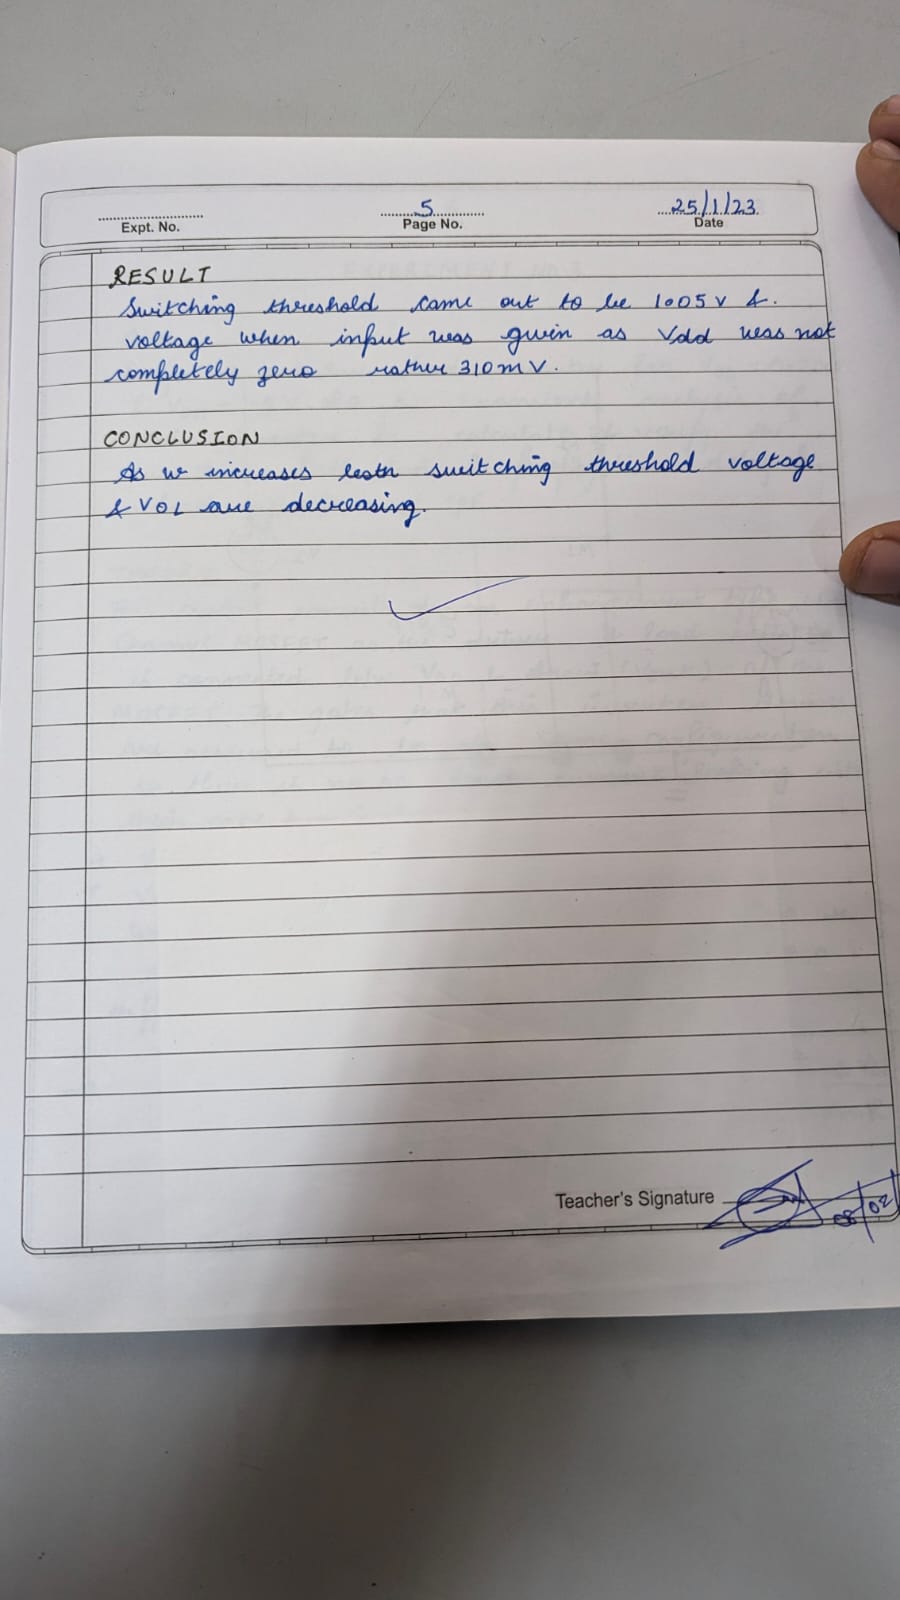 5
25/1/23
Expt. No.
Page No.
Date
RESULT
Switching threshold came out to be 1.005 v &.
voltage when input was given as Vdd was not
completely zero rather 310 mV.
CONCLUSION
As w increases both switching threshold voltage
& VOL are decreasing.
Teacher's Signature
08/02